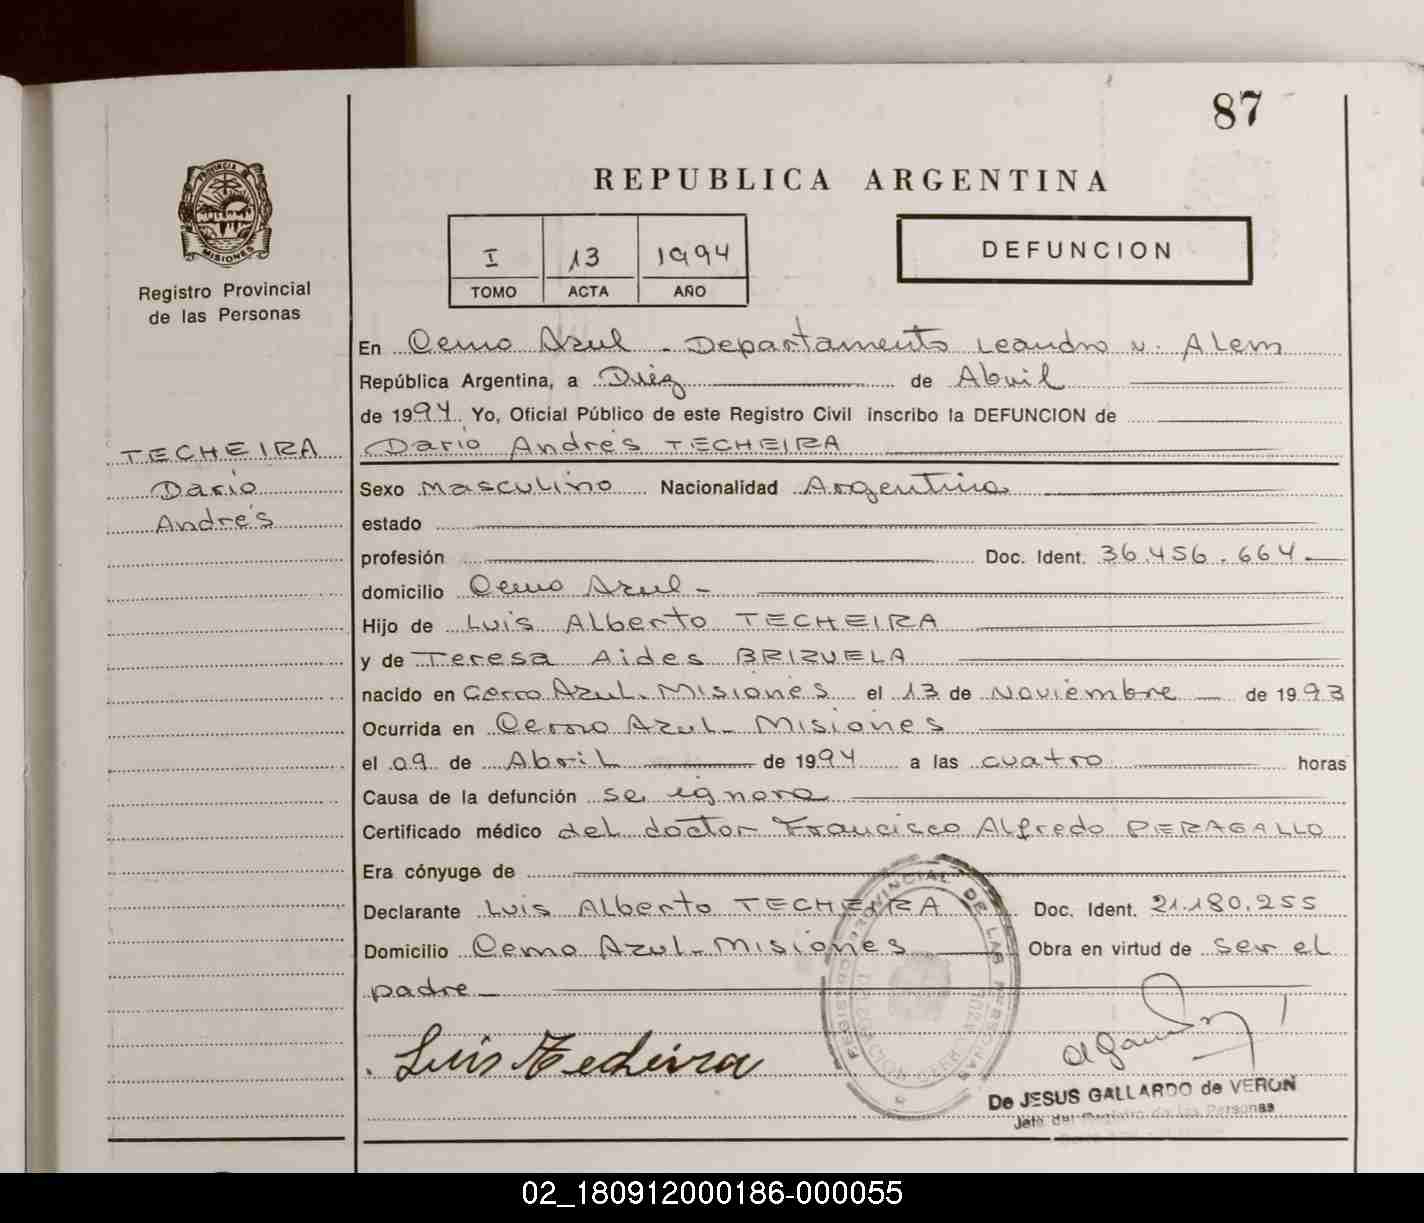 87
REPUBLICA ARGENTINA
PROVINCIA DE
MISIONES
Registro Provincial
de las Personas
I 13 1994
TOMO ACTA AÑO
DEFUNCION
En Cerro Azul - Departamento Leandro N. Alem
República Argentina, a Diéz de Abril
de 1994. Yo, Oficial Público de este Registro Civil inscribo la DEFUNCION de
TECHEIRA
Darío
Andrés
Darío Andrés TECHEIRA
Sexo Masculino Nacionalidad Argentina
estado
profesión Doc. Ident. 36.456.664.-
domicilio Cerro Azul -
Hijo de Luis Alberto TECHEIRA
y de Teresa Aides BRIZUELA
nacido en Cerro Azul. Misiones el 13 de Noviembre de 1993
Ocurrida en Cerro Azul - Misiones
el 09 de Abril de 1994 a las cuatro horas
Causa de la defunción se ignora
Certificado médico del doctor Francisco Alfredo PERAGALLO
Era cónyuge de
Declarante Luis Alberto TECHEIRA Doc. Ident. 21.180.255
Domicilio Cerro Azul - Misiones Obra en virtud de ser el
padre -
REGISTRO PROVINCIAL DE LAS PERSONAS
Luis Techeira
De JESUS GALLARDO de VERON
Jefe del Registro de las Personas
02_180912000186-000055